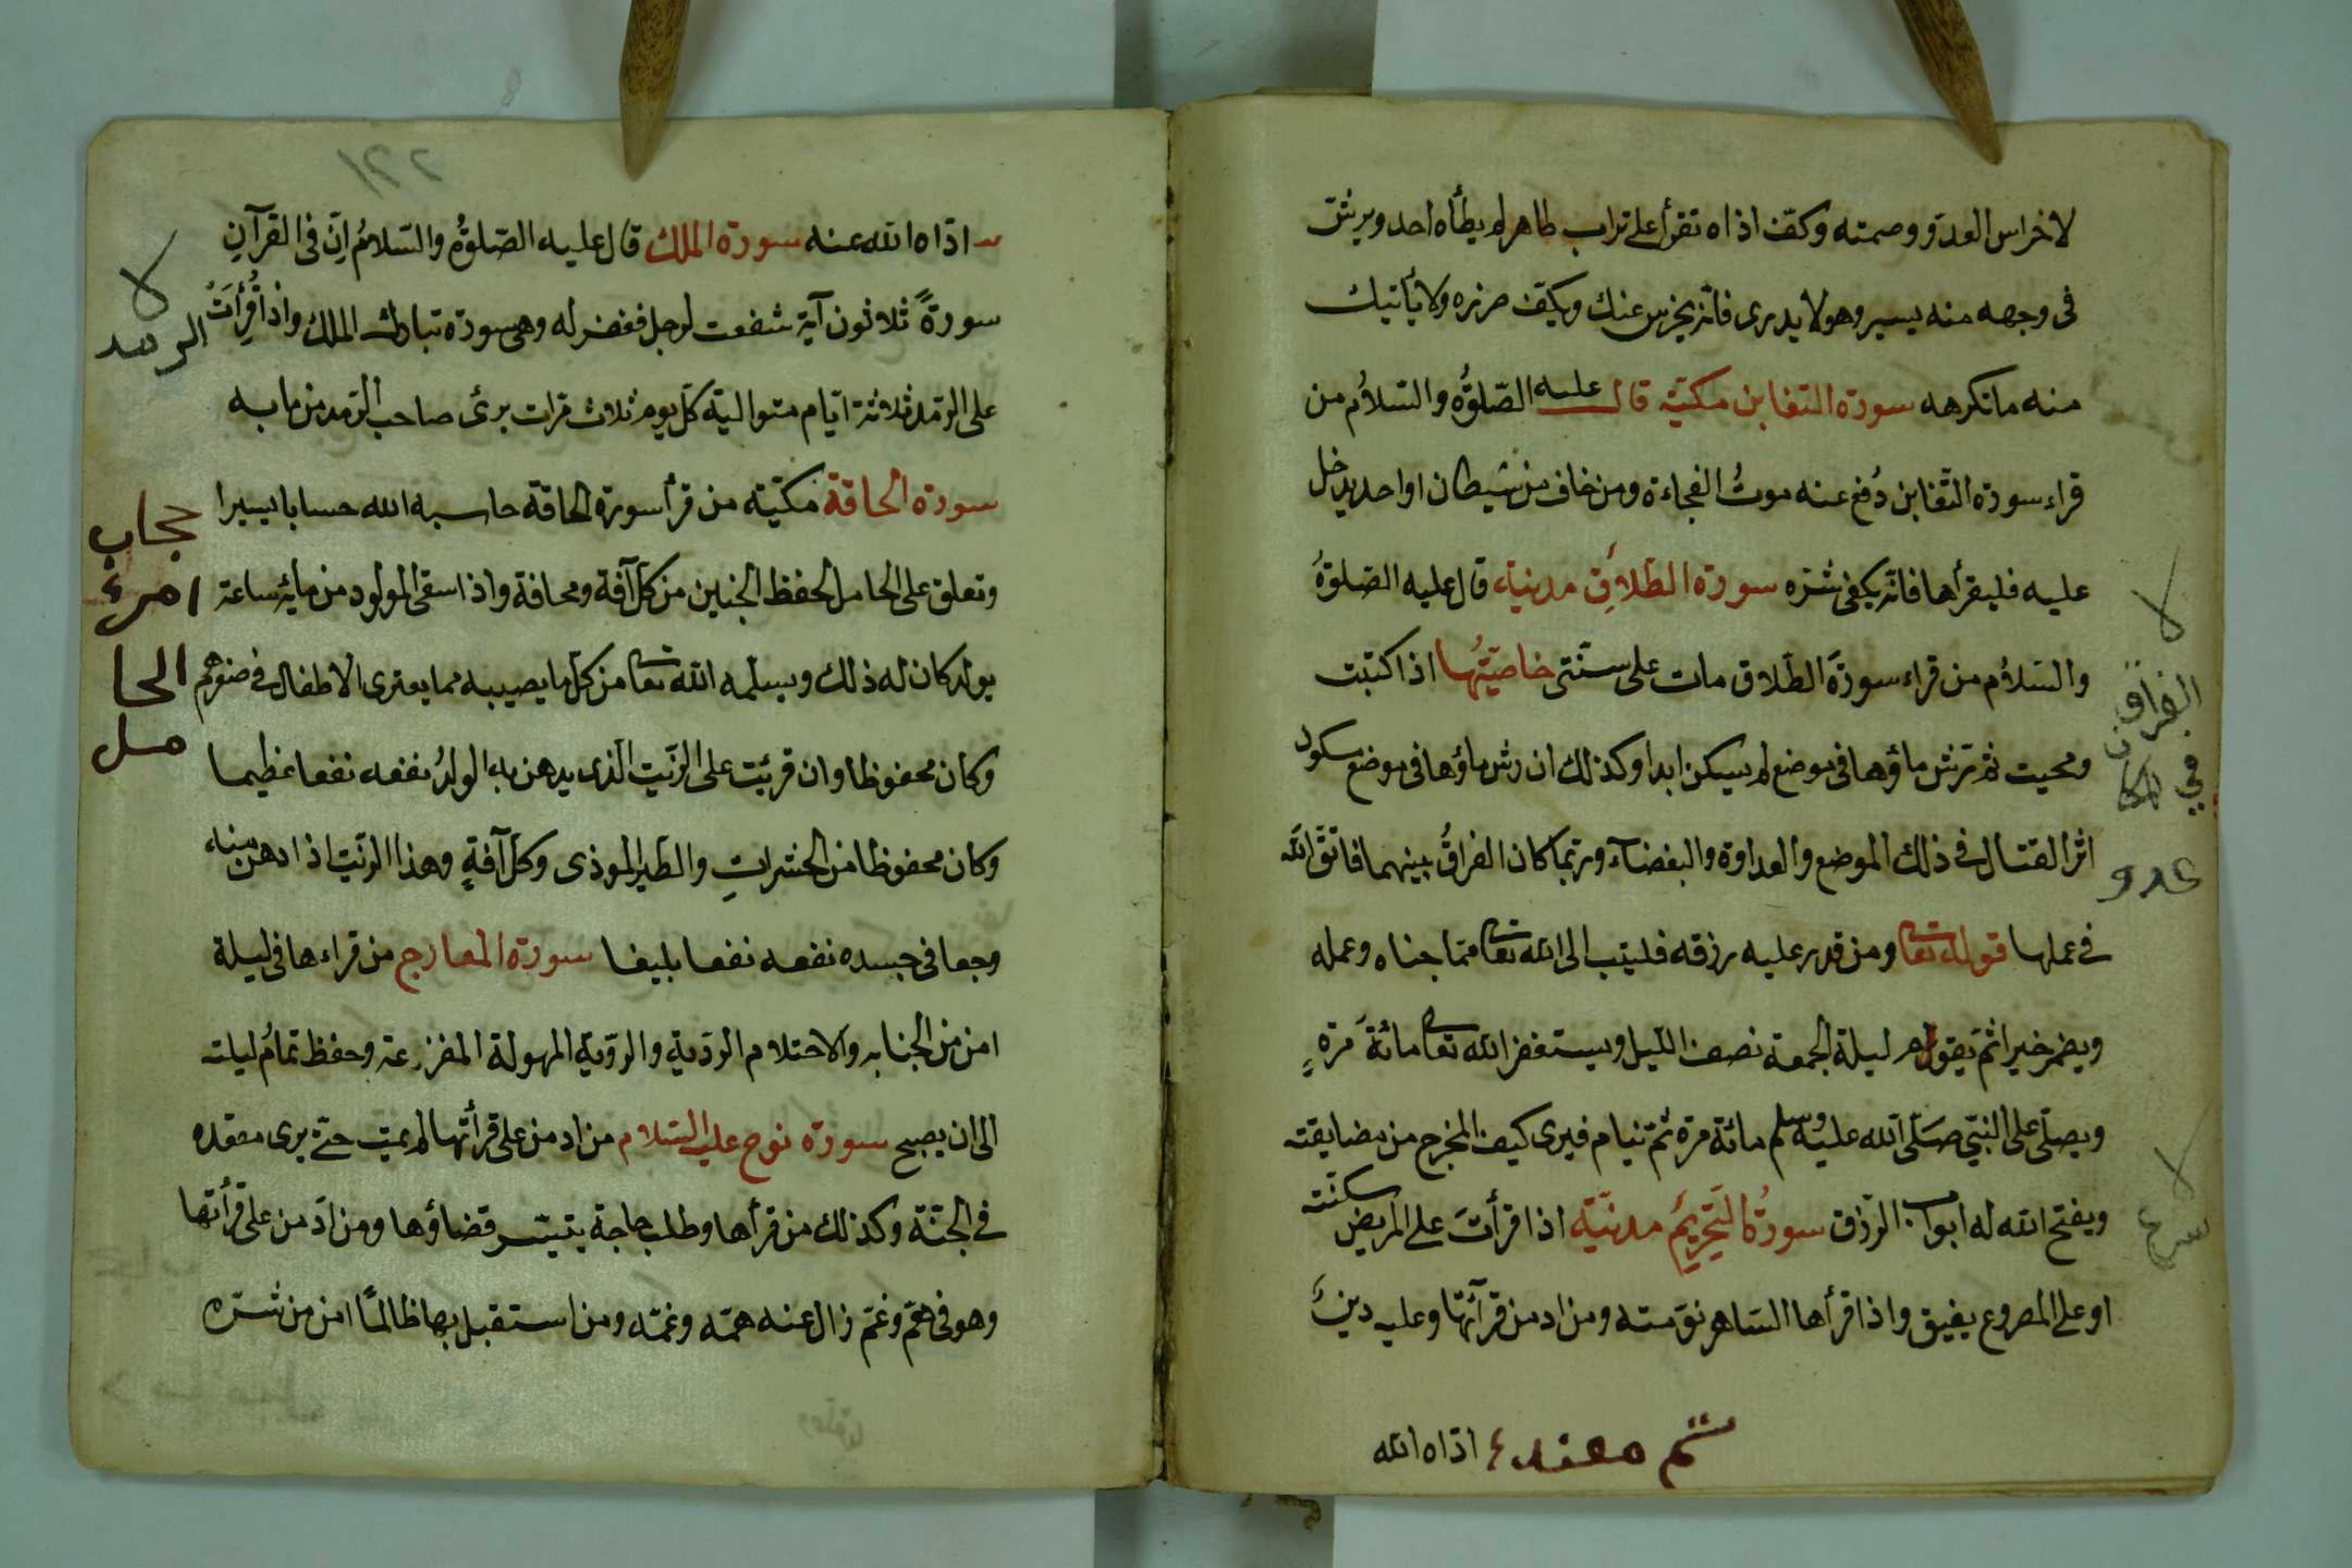 لاخراس العدوّ وصمته وكفّ اذاه تقرأ على تراب طاهر لم يطأه احد ويرشّ
فى وجهه منه يسير وهو لا يدرى فانّه يخرس عنك ويكفّ ضرره ولا يأتيك
منه ما تكرهه سورة التغابن مكيّة قال عليه الصّلوةُ والسّلامُ من
قراء سورة التّغابن دُفع عنه موتُ الفجاءة ومن خاف من شيطان او احد يدخل
عليه فليقرأها فانّه يكفى شرّه سورة الطلاق مدنية قال عليه الصلوةُ
والسّلامُ من قراء سورةَ الطّلاق مات على سنّتى خاصّيّتُها اذا كتبت
ومحيت ثم ترش ماؤها فى موضع لم يسكن ابدا وكذلك ان رش ماؤها فى موضع مسكون
اثر القتال فى ذلك الموضع والعداوة والبغضاء وربّما كان الفراقُ بينهما فاتّق الله
فى عملها قوله تعا ومن قدر عليه رزقه فليتب الى الله تعا ممّا جناه وعمله
ويضمر خيرا ثمّ يقوم ليلة الجمعة نصف الليل ويستغفر الله تعا مائةَ مرّةٍ
ويصلّى على النبّي صلّى الله عليه وسلم مائة مرة ثمّ ينام فيرى كيف المخرج من مضايقته
ويفتح الله له ابواب الرّزق سورةُ التَحريمُ مدنيّة اذا قرأتَ على المريض سكنّته
او على المصروع يفيق واذا قرأها السّاهر نوّمته ومن ادمن قرآئتها وعليه دينٌ
اذاه الله
الفراق
في المكان
عدو
سرع
اذاه الله عنه سورة الملك قال عليه الصّلوةُ والسّلامُ انّ فى القرآنِ
سورةً ثلاثون آية شفعت لرجل فغفر له وهى سورة تبارك الملك واذا قُرِأَتْ
على الرّمد ثلاثة ايّام متوالية كلّ يوم ثلاث مرّات برئ صاحب الرّمد من ما به
سورة الحاقة مكيّة من قرأ سورة الحاقّة حاسبه الله حسابا يسيرا
وتعلق على الحامل لحفظ الجنين من كلّ آفة ومخافة واذا سقى المولود من مائه ساعة
يولد كان له ذلك ويسلمه الله تعا من كلّ ما يصيبه مما يعترى الاطفال فى صغرهم
وكان محفوظا وان قرئت على الزّيت الّذى يدهن به الولدُ نفعه نفعا عظيما
وكان محفوظا من الحشراتِ والطير الموذى وكلّ آفةٍ وهذا الزيت اذا دهن منه
وجعا فى جسده نفعه نفعا بليغا سورة المعارج من قراءها فى ليلة
امن من الجنابه والاحتلام الردّية والروّية المهولة المفزرعة وحفظ تمامُ ليلته
الى ان يصبح سورة نوح عليه السّلام من ادمن على قرأتها لم يمت حتى يرى مقعده
فى الجنّة وكذلك من قرأها وطلب حاجة يتيسّر قضاؤها ومن ادمن على قرأتها
وهو فى همّ وغمّ زال عنه همّه وغمّه ومن استقبل بها ظالمًا امن من شرّه
الرمد
حجاب
امرء
الحا
مل